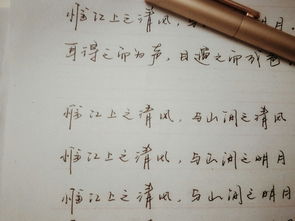 惟江上之清风，与山间之明月，
耳得之而为声，目遇之而成色，
惟江上之清风，与山间之清风
惟江上之清风，与山间之明月
惟江上之清风，与山间之明月